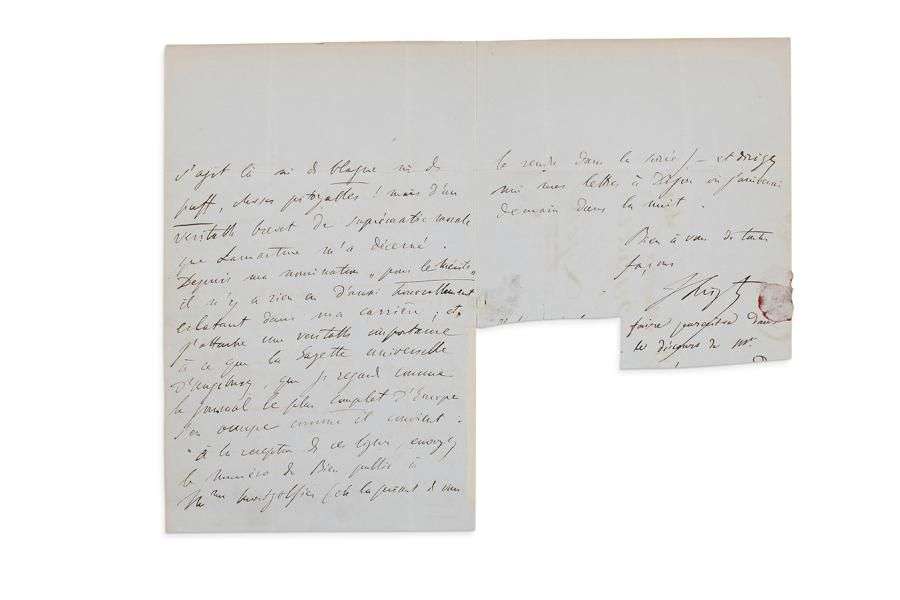 s'agit là ni de blague ni de
puff, choses pitoyables ! mais d'un
véritable brevet de suprématie morale
que Lamartine m'a décerné.
Depuis ma nomination „pour le Mérite"
il n'y a rien eu d'aussi
éclatant dans ma carrière ; et
j'attache une véritable importance
à ce que la Gazette universelle
d'Augsbourg, que je regarde comme
le journal le plus complet d'Europe
s'en occupe comme il convient.
à la réception de ces lignes, envoyez
le numéro du Bien public à
Mme Montgolfier (en la priant de vous
le rendre dans la soirée) — et dirigez
moi mes lettres à Dijon où j'arriverai
demain dans la nuit.
Bien à vous de toutes
façons
F Liszt
faire paraître dans
le discours de Mr